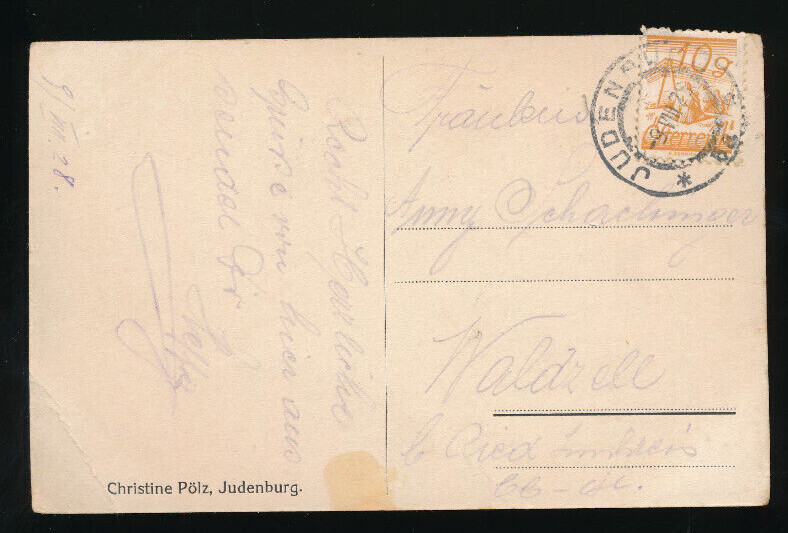 9/VII.28.
Recht Herzliche
Grüße von hier aus
sendet Dir
Fräulein
Anny Schachinger
Waldzell
b. Ried Innkreis
Ob-Öst.
10g
Österreich
JUDENBURG
Christine Pölz, Judenburg.